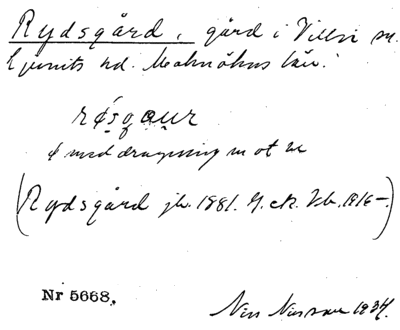 Rydsgård, gård i Villie sn.
Ljunits hd. Malmöhus län.
røsgaur
ø med dragning mot u
(Rydsgård jb. 1881. G.ck. Ub. 1916-)
Nr 5668.
Nils Nilsson 1934.